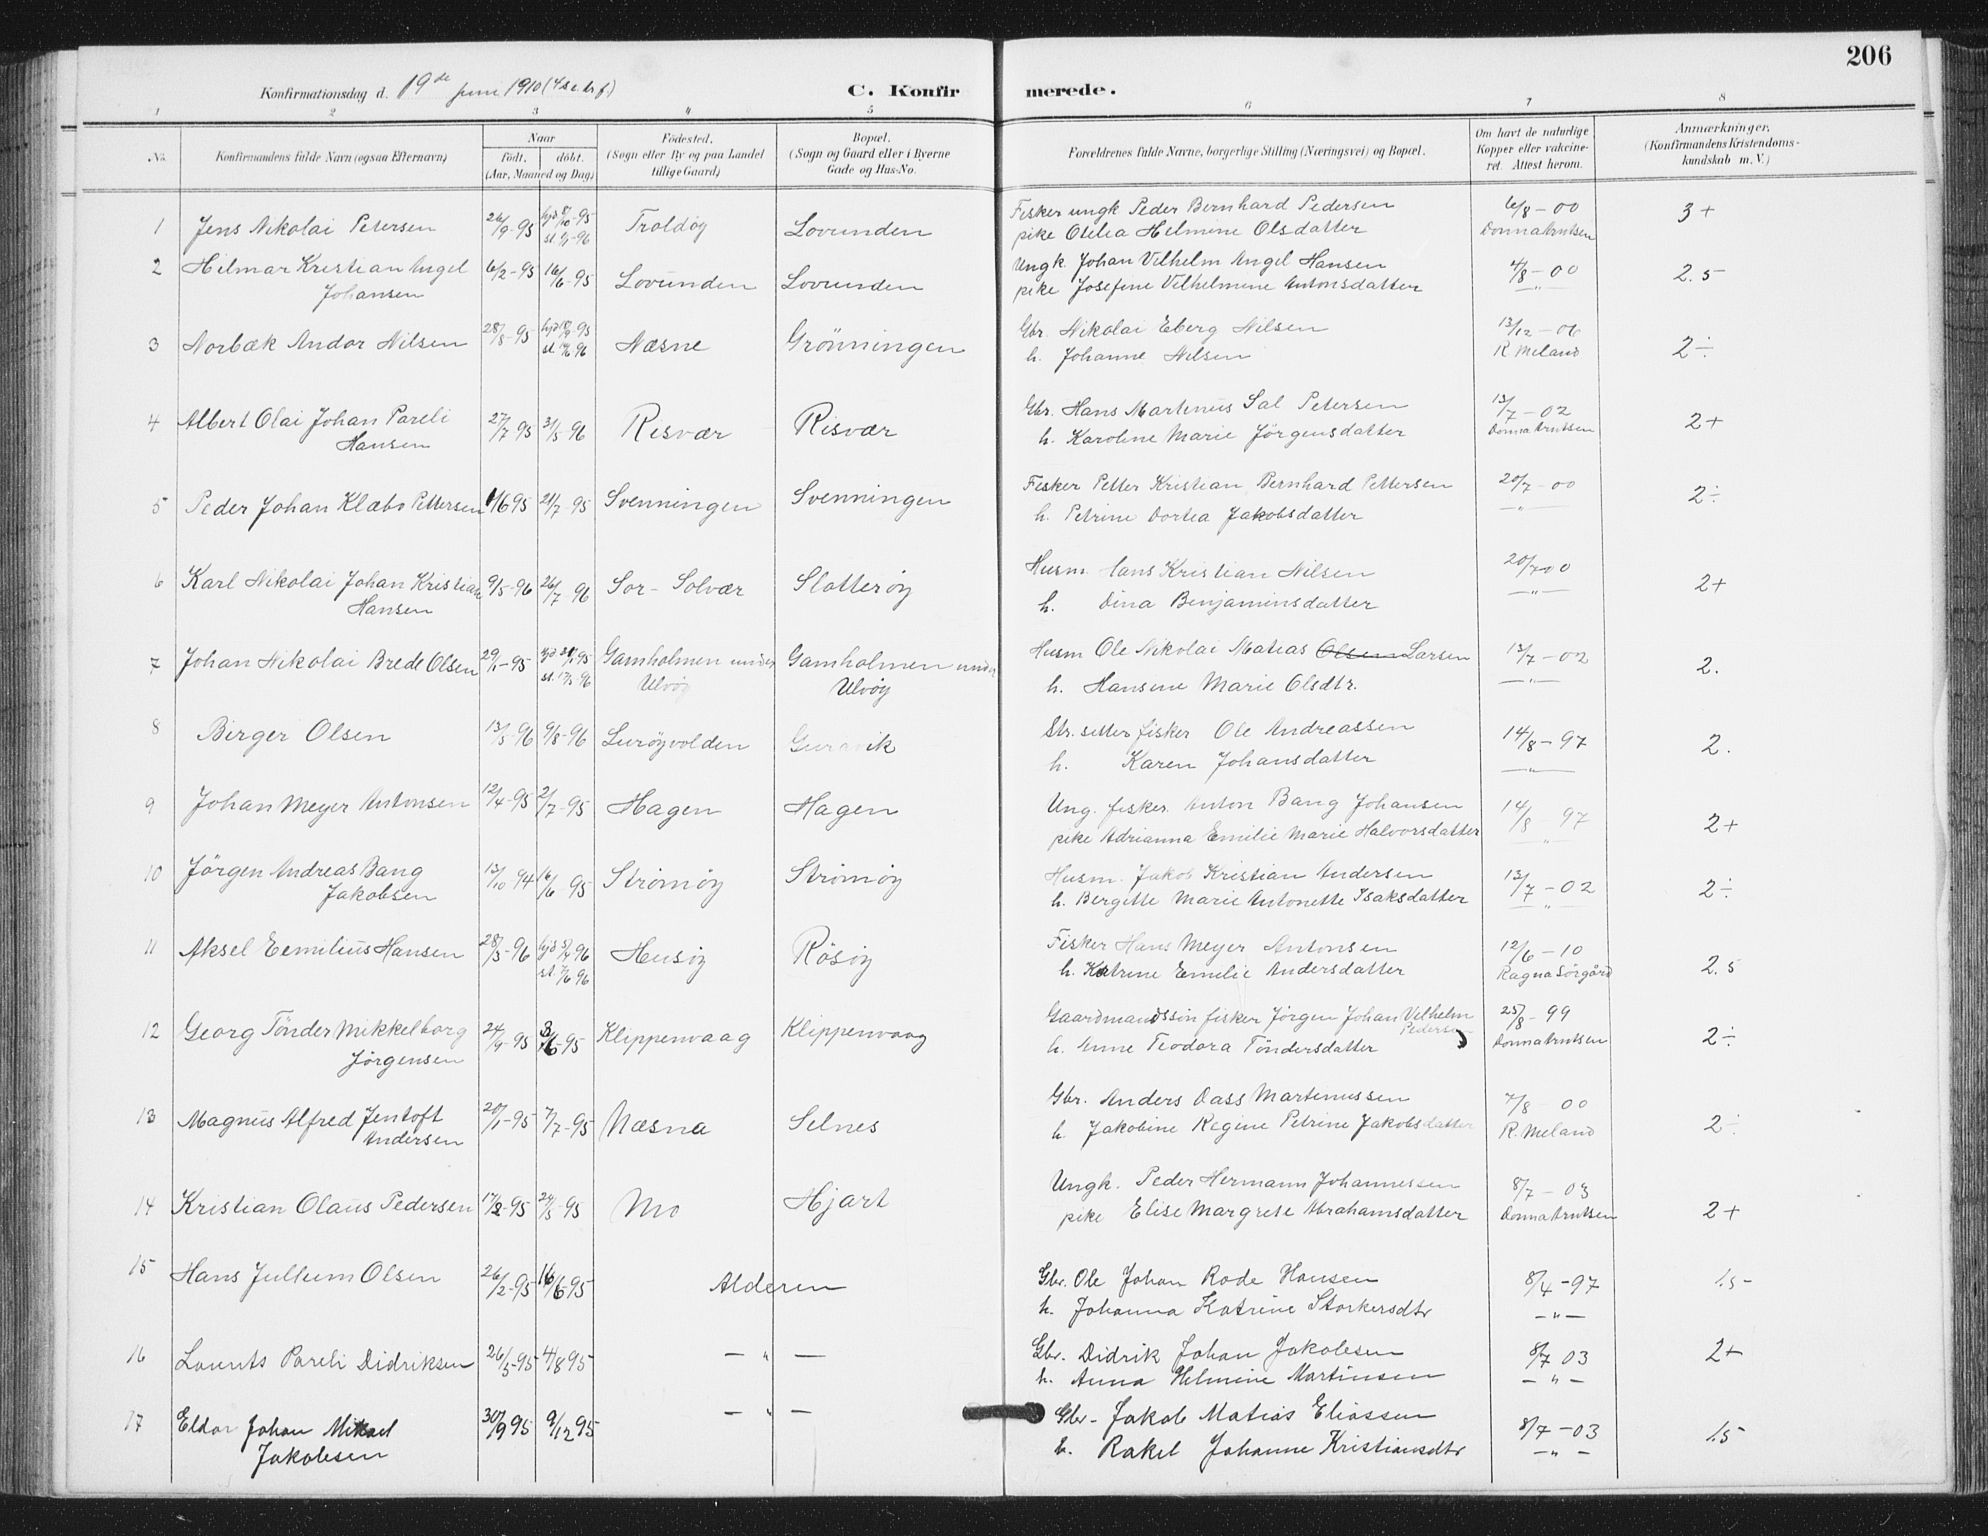 206
Konfirmationsdag d. 19de juni 1910 (4 s. e. tr. f.)
C. Konfirmerede.
1 2 3 4 5 6 7 8
No.
Konfirmandens fulde Navn (ogsaa Efternavn)
Naar
født. døbt.
(Aar, Maaned og Dag)
Fødested.
(Sogn eller By og paa Landet
tillige Gaard)
Bopæl.
(Sogn og Gaard eller i Byerne
Gade og Hus-No.
Forældrenes fulde Navne, borgerlige Stilling (Næringsvei) og Bopæl.
Om havt de naturlige
Kopper eller vakcine-
ret. Attest herom.
Anmærkninger.
(Konfirmandens Kristendoms-
kundskab m. V.)
1 Jens Nikolai Petersen 26/9-95 hjd 8/10-95 Troldøy Lovunden Fisker ungk Peder Bernhard Pedersen 6/8-00 3+
st. 1/1-96 pike Otilia Helmine Olsdatter Donna Arntsen
2 Hilmar Kristian Angel 6/2-95 16/6-95 Lovunden Lovunden Ungk. Johan Vilhelm Angel Hansen 4/8-00 2.5
Johansen pike Josefine Vilhelmine Antonsdatter —"—
3 Norbæk Andor Nilsen 28/8-95 hjd 18/9-95 Næsne Grønningen Gbr. Nikolai Eberg Nilsen 13/12-06 2÷
st. 14/6 96 h. Johanne Nilsen R. Meland
4 Albert Olai Johan Pareli 27/7-95 31/5-96 Risvær Risvær Gbr. Hans Martinus Sal Petersen 13/7-02 2+
Hansen h. Karoline Marie Jørgensdatter Donna Arntsen
5 Peder Johan Klæbo Pettersen 1/6 95 21/7-95 Svenningen Svenningen Fisker Petter Kristian Bernhard Pettersen 20/7-00 2÷
h. Petrine Dortea Jakobsdatter —"—
6 Karl Nikolai Johan Kristian 9/5-96 26/7 96 Sør-Solvær Slotterøy Husm. Hans Kristian Nilsen 20/7 00 2+
Hansen h. Dina Benjaminsdatter —"—
7 Johan Nikolai Brede Olsen 29/1-95 hjd 31/1 95 Gamholmen under Gamholmen under Husm Ole Nikolai Matias Olsen Larsen 13/7-02 2.
st. 17/5 96 Ulvøy Ulvøy h. Hansine Marie Olsdtr. —"—
8 Birger Olsen 13/5-96 9/8-96 Lurøyvolden Guravik Str.sitter fisker Ole Andreassen 14/8-97 2.
h. Karen Johansdatter —"—
9 Johan Meyer Antonsen 12/4-95 2/7-95 Hagen Hagen Ung. fisker Anton Bang Johansen 14/8 97 2+
pike Adrianna Emilie Marie Halvorsdatter —"—
10 Jørgen Andreas Bang 13/10 94 16/6 95 Strømøy Strømøy Husm. Jakob Kristian Andersen 13/7-02 2÷
Jakobsen h. Bergitte Marie Antonette Isaksdatter —"—
11 Aksel Eemilius Hansen 28/3-96 hjd 5/4 96 Husøy Røsøy Fisker Hans Meyer Antonsen 12/6-10 2.5
st. 7/6 96 h. Katrine Emilie Andersdatter Ragna Sørgård
12 Georg Tønder Mikkelborg 24/4-95 3/6-95 Klippenvaag Klippenvaag Gaardmandssøn fisker Jørgen Johan Vilhelm 25/8-99 2÷
Pedersen
Jørgensen h. Anne Teodora Tøndersdatter Donna Arntsen
13 Magnus Alfred Jentoft 20/1-95 7/7-95 Næsna Selnes Gbr. Anders Dass Martinussen 7/8 00 2÷
Andersen h Jakobine Regine Petrine Jakobsdatter R. Meland
14 Kristian Olaus Pedersen 17/2-95 24/5-95 Mo Hjart Ungk. Peder Hermann Johannessen 8/7-03 2+
pike Elise Margrete Abrahamsdatter Donna Arntsen
15 Hans Jullum Olsen 26/2-95 16/6-95 Alderen Gbr. Ole Johan Rode Hansen 8/4-97 1.5-
h. Johanna Katrine Storkersdtr —"—
16 Laurits Pareli Didriksen 26/5-95 4/8 95 —"— Gbr. Didrik Johan Jakobsen 8/7 03 2+
h. Anna Helmine Martinsen —"—
17 Eldor Johan Mikael 30/9 95 9/12 95 —"— Gbr- Jakob Matias Eliassen 8/7-03 1.5
Jakobsen h. Rakel Johanne Kristiansdtr —"—